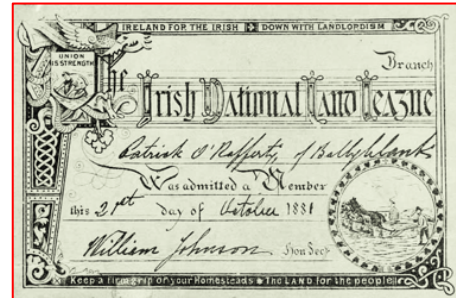 IRELAND FOR THE IRISH DOWN WITH LANDLORDISM
UNION
IS STRENGTH
Branch
The Irish National Land League
Patrick O'Rafferty, of Ballyblank
Was admitted a Member
this 21st day of October 1881
William Johnson Hon Sec
Keep a firm grip on your Homesteads The LAND for the people